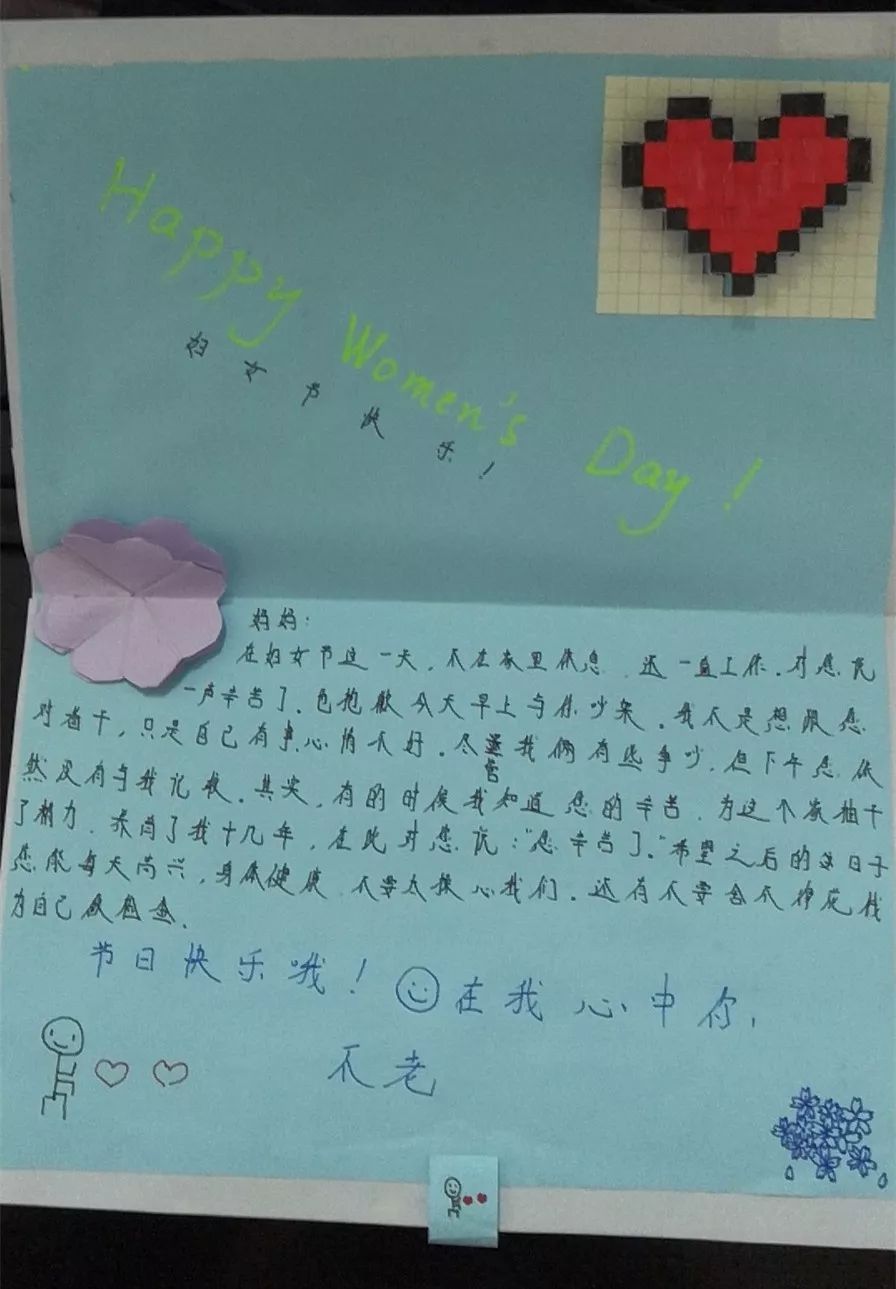 Happy Women's Day!
妇女节快乐!
妈妈:
在妇女节这一天,不在家里休息,还一直工作.对您说
一声辛苦了.也抱歉今天早上与你吵架.我不是想跟您
对着干,只是自己有事心情不好.尽管我俩有些争吵,但下午您依
然没有与我记较.其实,有的时候我知道您的辛苦,为这个家抽干
了精力,养育了我十几年,在此对您说:"您辛苦了。"希望之后的日子
您能每天高兴,身体健康,不要太操心我们.还有不要舍不得花钱
为自己
节日快乐哦!☺在我心中你,
不老